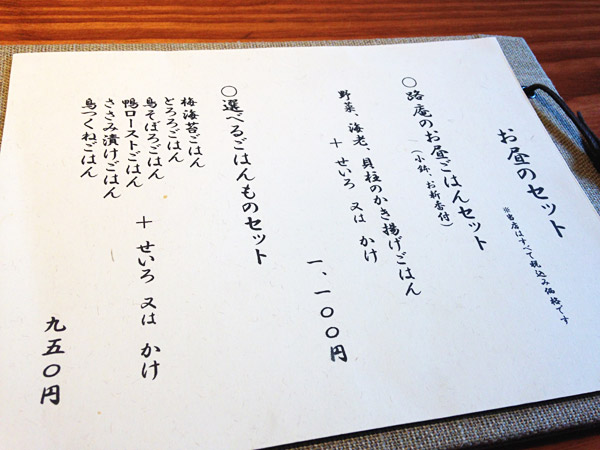 お昼のセット
※当店はすべて税込み価格です
○路庵のお昼ごはんセット
(小鉢、お新香付)
野菜、海老、貝柱のかき揚げごはん
+ せいろ 又は かけ
一、一〇〇円
○選べるごはんものセット
梅海苔ごはん
とろろごはん
鳥そぼろごはん
鴨ローストごはん
ささみ漬けごはん
鳥つくねごはん
+ せいろ 又は かけ
九五〇円